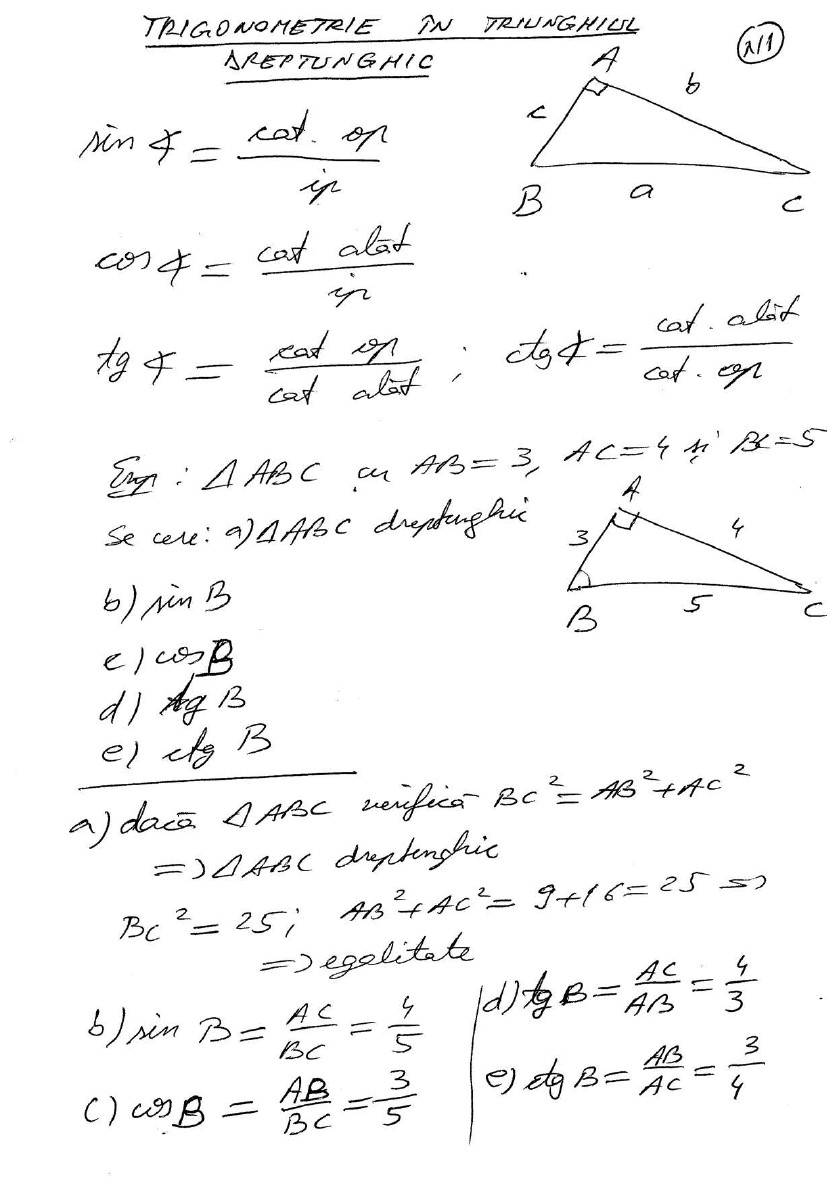 TRIGONOMETRIE ÎN TRIUNGHIUL
DREPTUNGHIC
A
b
c
B a C
sin ∢ = cat. op / ip
cos ∢ = cat alăt / ip
tg ∢ = cat op / cat alăt ; ctg ∢ = cat. alăt / cat. op
Exp : △ABC cu AB = 3, AC = 4 și BC = 5
Se cere: a) △ABC dreptunghic
A
3 4
B 5 C
b) sin B
c) cos B
d) tg B
e) ctg B
a) dacă △ABC verifică BC² = AB² + AC²
=> △ABC dreptunghic
BC² = 25 ; AB² + AC² = 9 + 16 = 25 =>
=> egalitate
b) sin B = AC / BC = 4 / 5
c) cos B = AB / BC = 3 / 5
d) tg B = AC / AB = 4 / 3
e) ctg B = AB / AC = 3 / 4